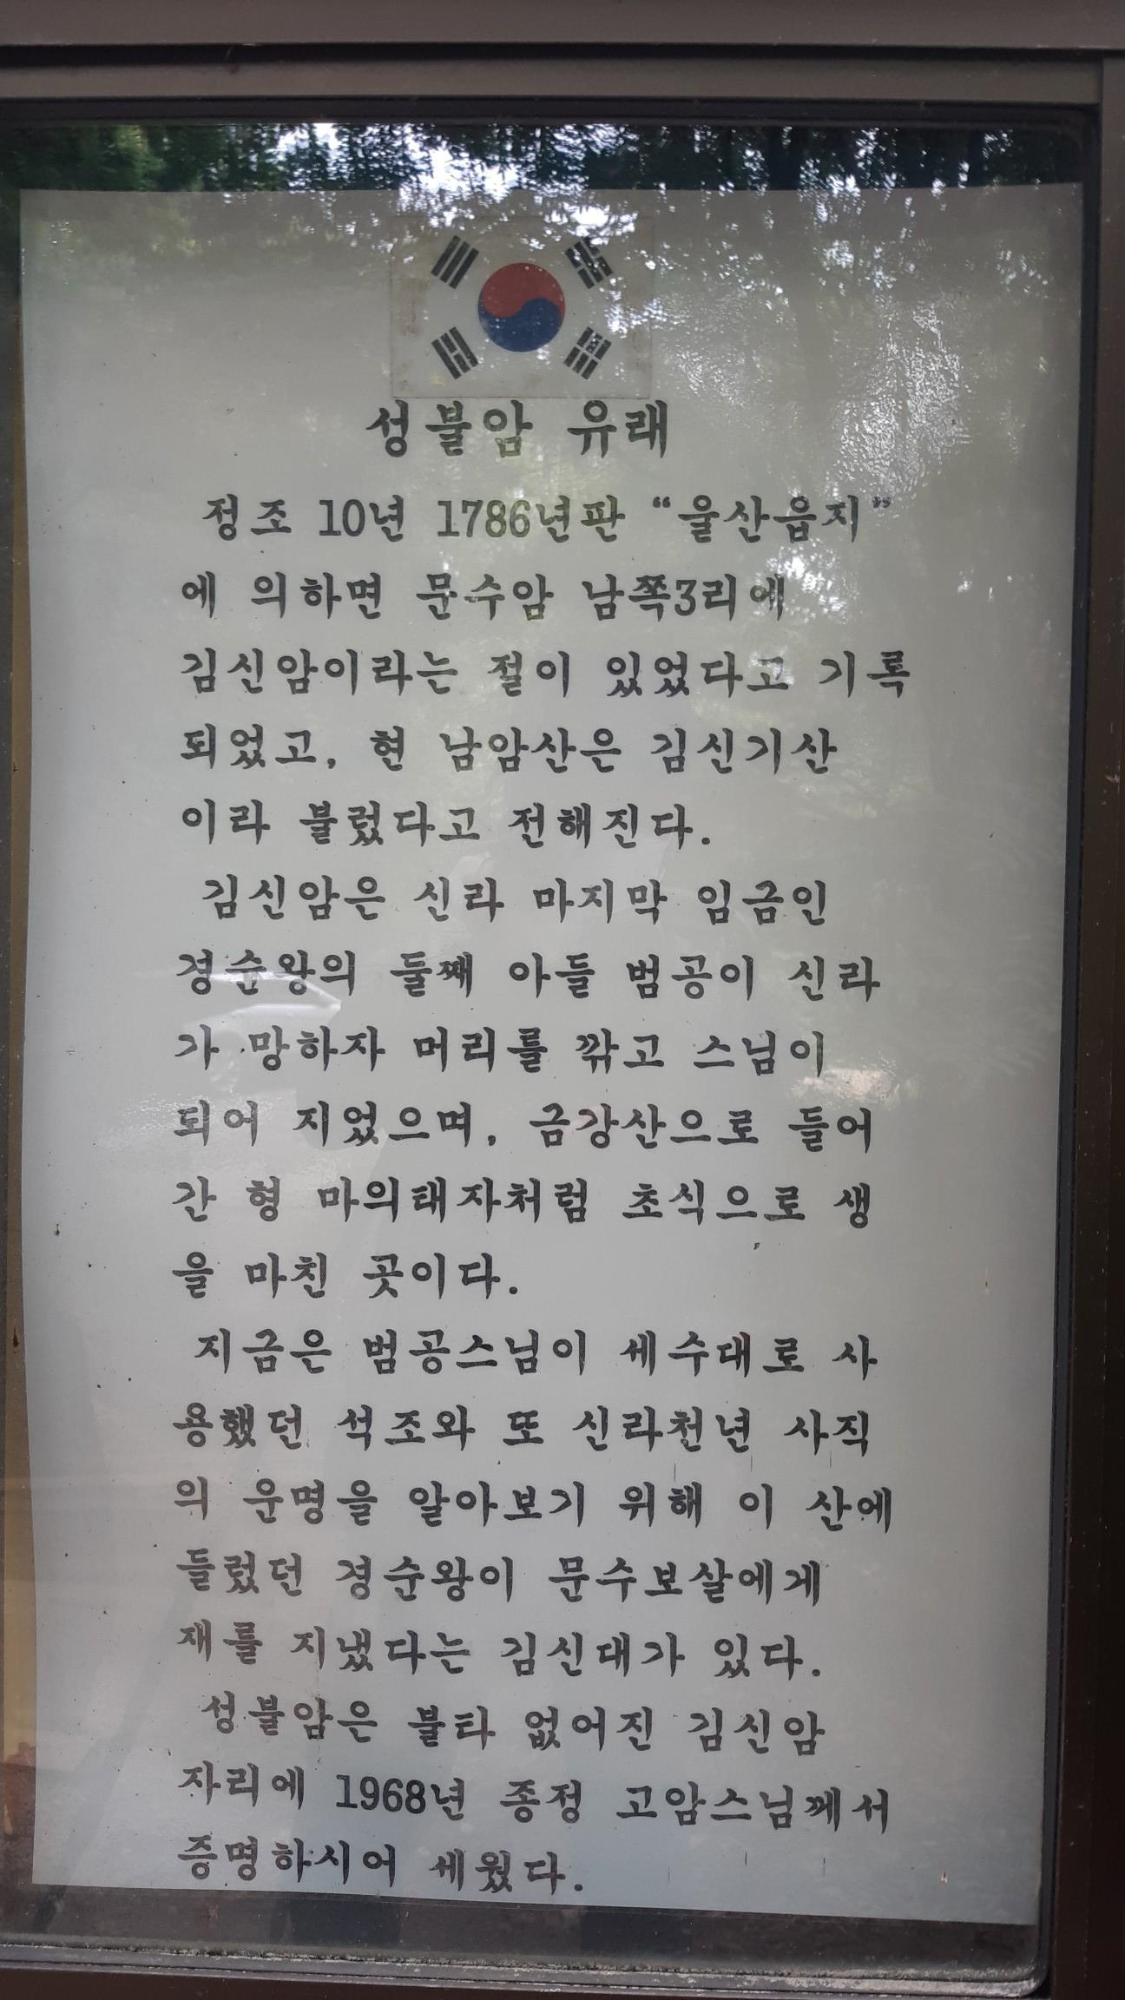 성불암 유래
정조 10년 1786년판 “울산읍지”
에 의하면 문수암 남쪽3리에
김신암이라는 절이 있었다고 기록
되었고, 현 남암산은 김신기산
이라 불렀다고 전해진다.
김신암은 신라 마지막 임금인
경순왕의 둘째 아들 범공이 신라
가 망하자 머리를 깎고 스님이
되어 지었으며, 금강산으로 들어
간 형 마의태자처럼 초식으로 생
을 마친 곳이다.
지금은 범공스님이 세수대로 사
용했던 석조와 또 신라천년 사직
의 운명을 알아보기 위해 이 산에
들렀던 경순왕이 문수보살에게
재를 지냈다는 김신대가 있다.
성불암은 불타 없어진 김신암
자리에 1968년 종정 고암스님께서
증명하시어 세웠다.